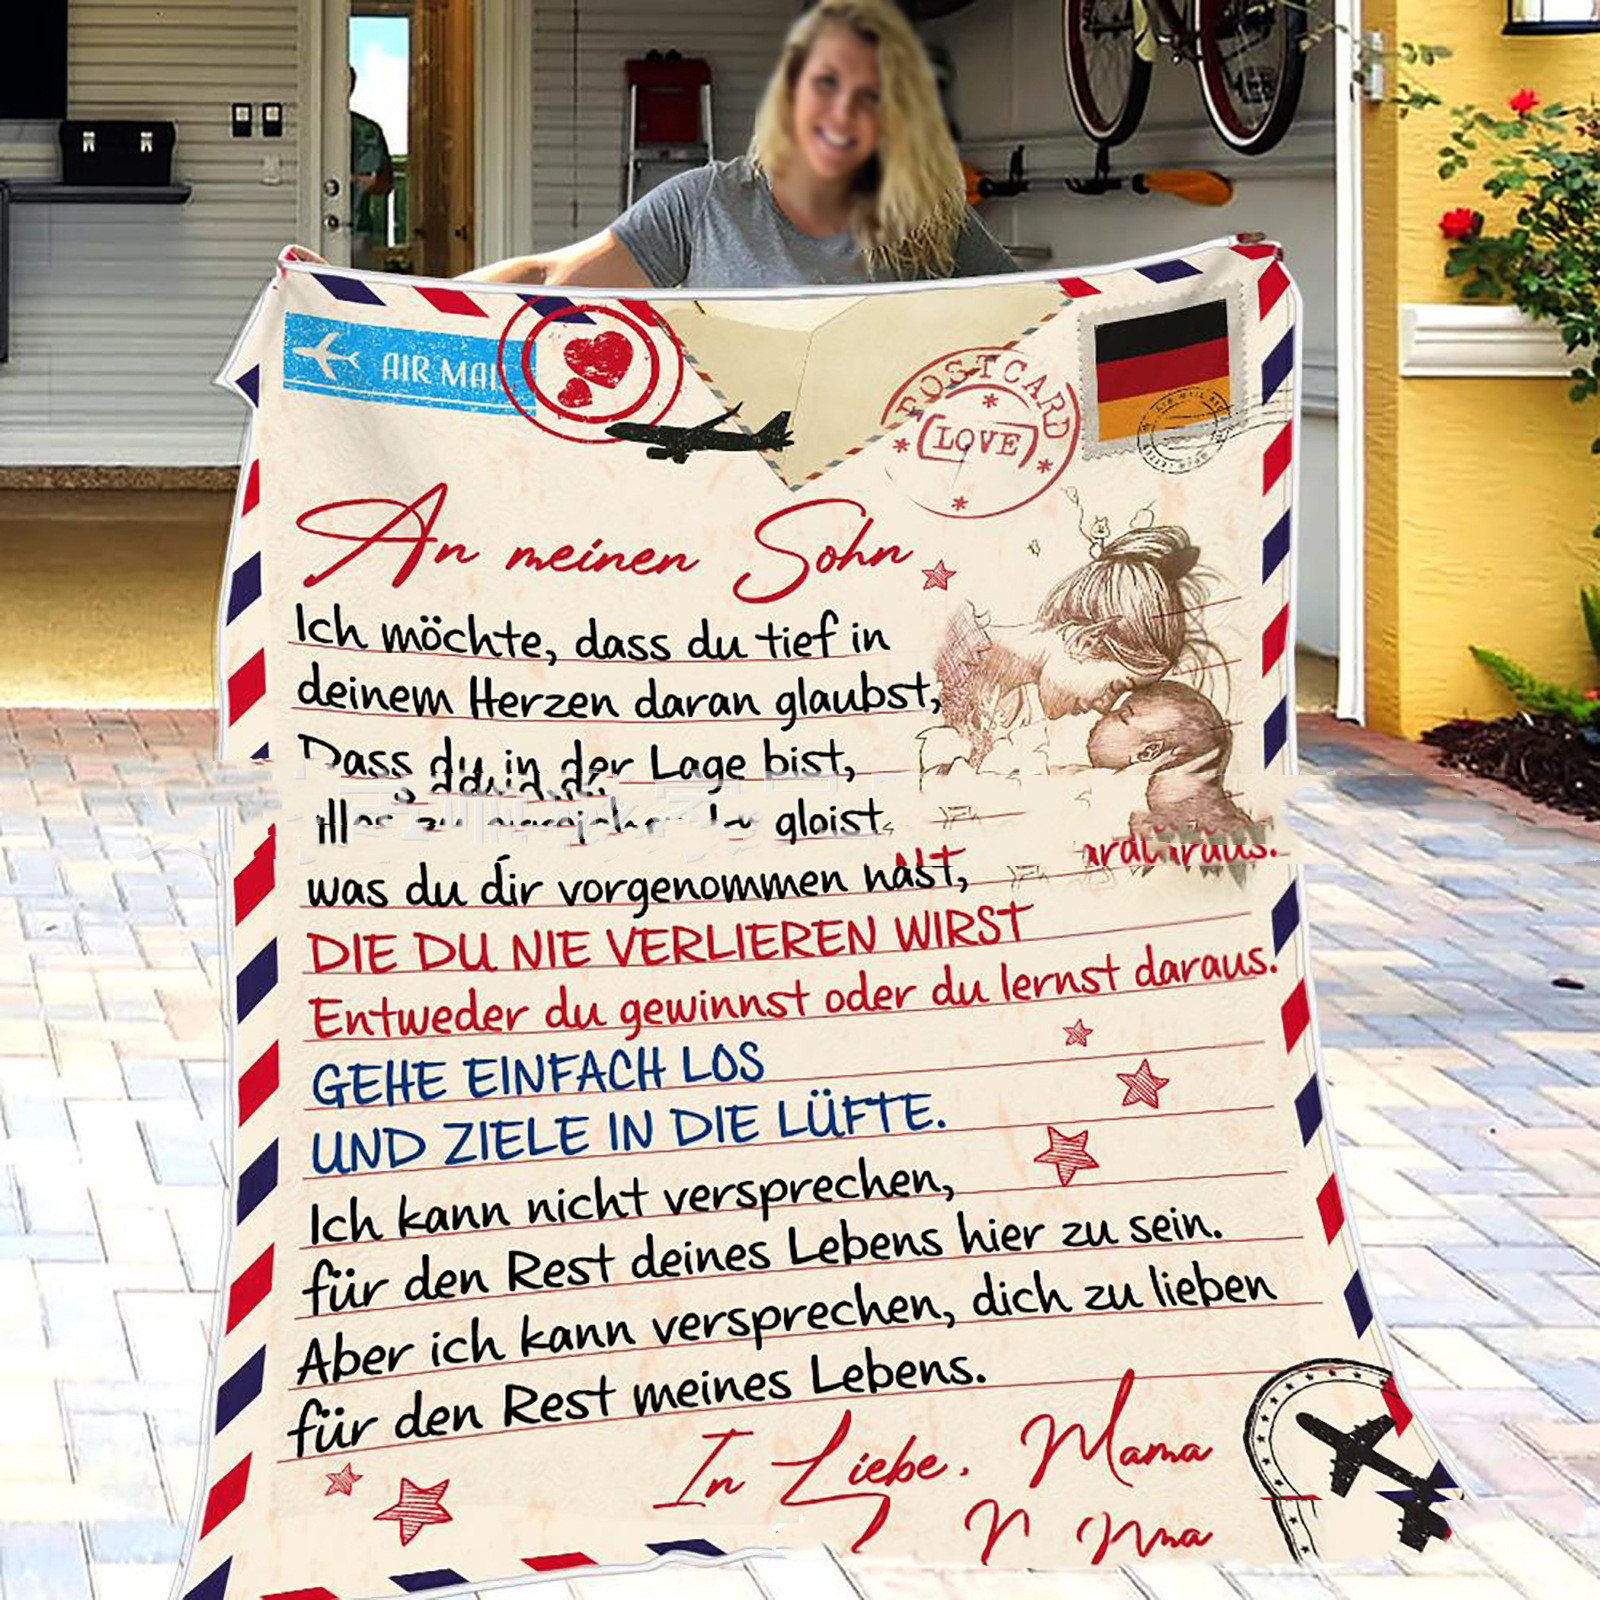 AIR MAIL
POSTCARD
LOVE
An meinen Sohn
Ich möchte, dass du tief in
deinem Herzen daran glaubst,
Dass du in der Lage bist,
was du dir vorgenommen hast,
DIE DU NIE VERLIEREN WIRST
Entweder du gewinnst oder du lernst daraus.
GEHE EINFACH LOS
UND ZIELE IN DIE LÜFTE.
Ich kann nicht versprechen,
für den Rest deines Lebens hier zu sein.
Aber ich kann versprechen, dich zu lieben
für den Rest meines Lebens.
In Liebe, Mama